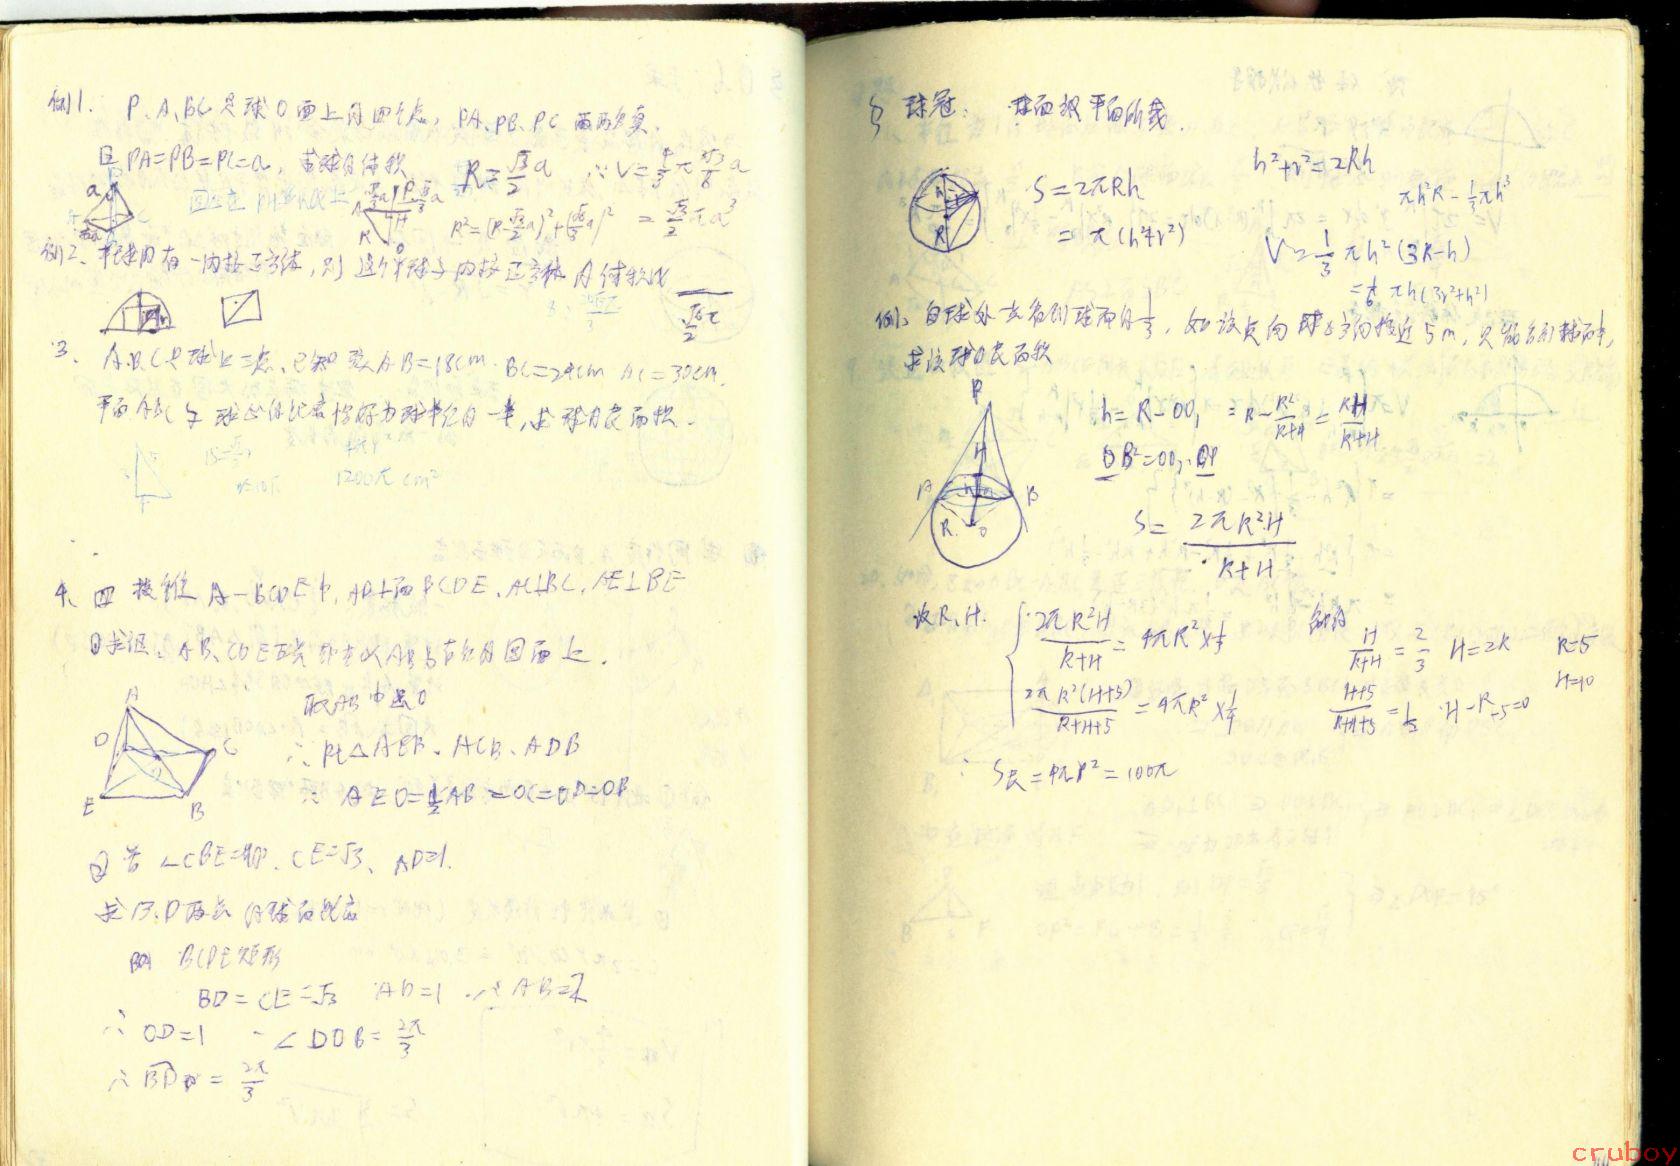 例1. P、A、B、C是球O面上的四个点, PA、PB、PC两两垂直.
且PA=PB=PC=a, 求球的体积
R=√3/2 a ∴V=4/3 π
= √3/2 πa³
例2、半球内有一内接正方体, 则这个半球与内接正方体的体积比
3、A、B、C是球上三点、已知弦AB=18cm. BC=24cm AC=30cm.
平面ABC与球心的距离恰好为球半径的一半, 求球的表面积.
1200π cm²
4、四棱锥A-BCDE中, AD⊥面BCDE、AC⊥BC, AE⊥BE
①求证: A、B、C、D、E五点都在以AB为直径的同一球面上.
A
D C
E B
取AB中点O
∴ Rt△AEB、ACB、ADB
∴ AEO=1/2AB=OC=OD=OB
②若∠CBE=90°、CE=√3、AD=1.
求B、D两点的球面距离
BCDE矩形
BD=CE=√3 AD=1 ∴ AB=2
∴ OD=1 ∠DOB=2π/3
∴ BD = 2π/3
§ 球冠: 球面被平面所截.
S=2πRh
=π(h²+r²)
h²+r²=2Rh
πh²R-1/3πh³
V=1/3πh²(3R-h)
=1/6πh(3r²+h²)
例: 自球外一点看到球面的1/3, 如该点向球方向接近5m, 只能看到球面的1/4,
求该球的表面积
P
H
A B
R O
h=R-OO₁ =R-R²/(R+H)=RH/(R+H)
OB²=OO₁·OP
S=2πR²H/(R+H)
设R、H.
2πR²H/(R+H)=4πR²×1/3
2πR²(H+5)/(R+H+5)=4πR²×1/4
解得
H/(R+H)=2/3 H=2R R=5
(H+5)/(R+H+5)=1/2 H-R+5=0 H=10
∴ S表=4πr²=100π
cruboy